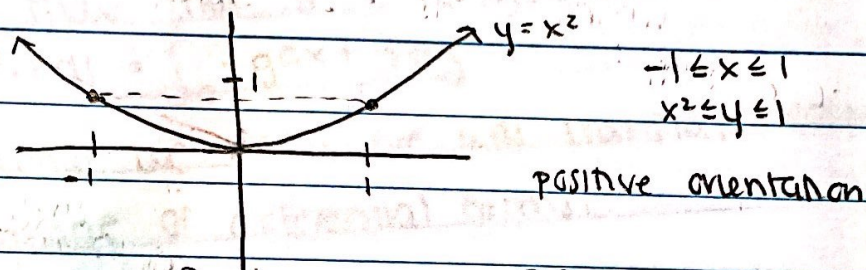 y = x²
1
-1 ≤ x ≤ 1
x² ≤ y ≤ 1
-1
1
positive orientation